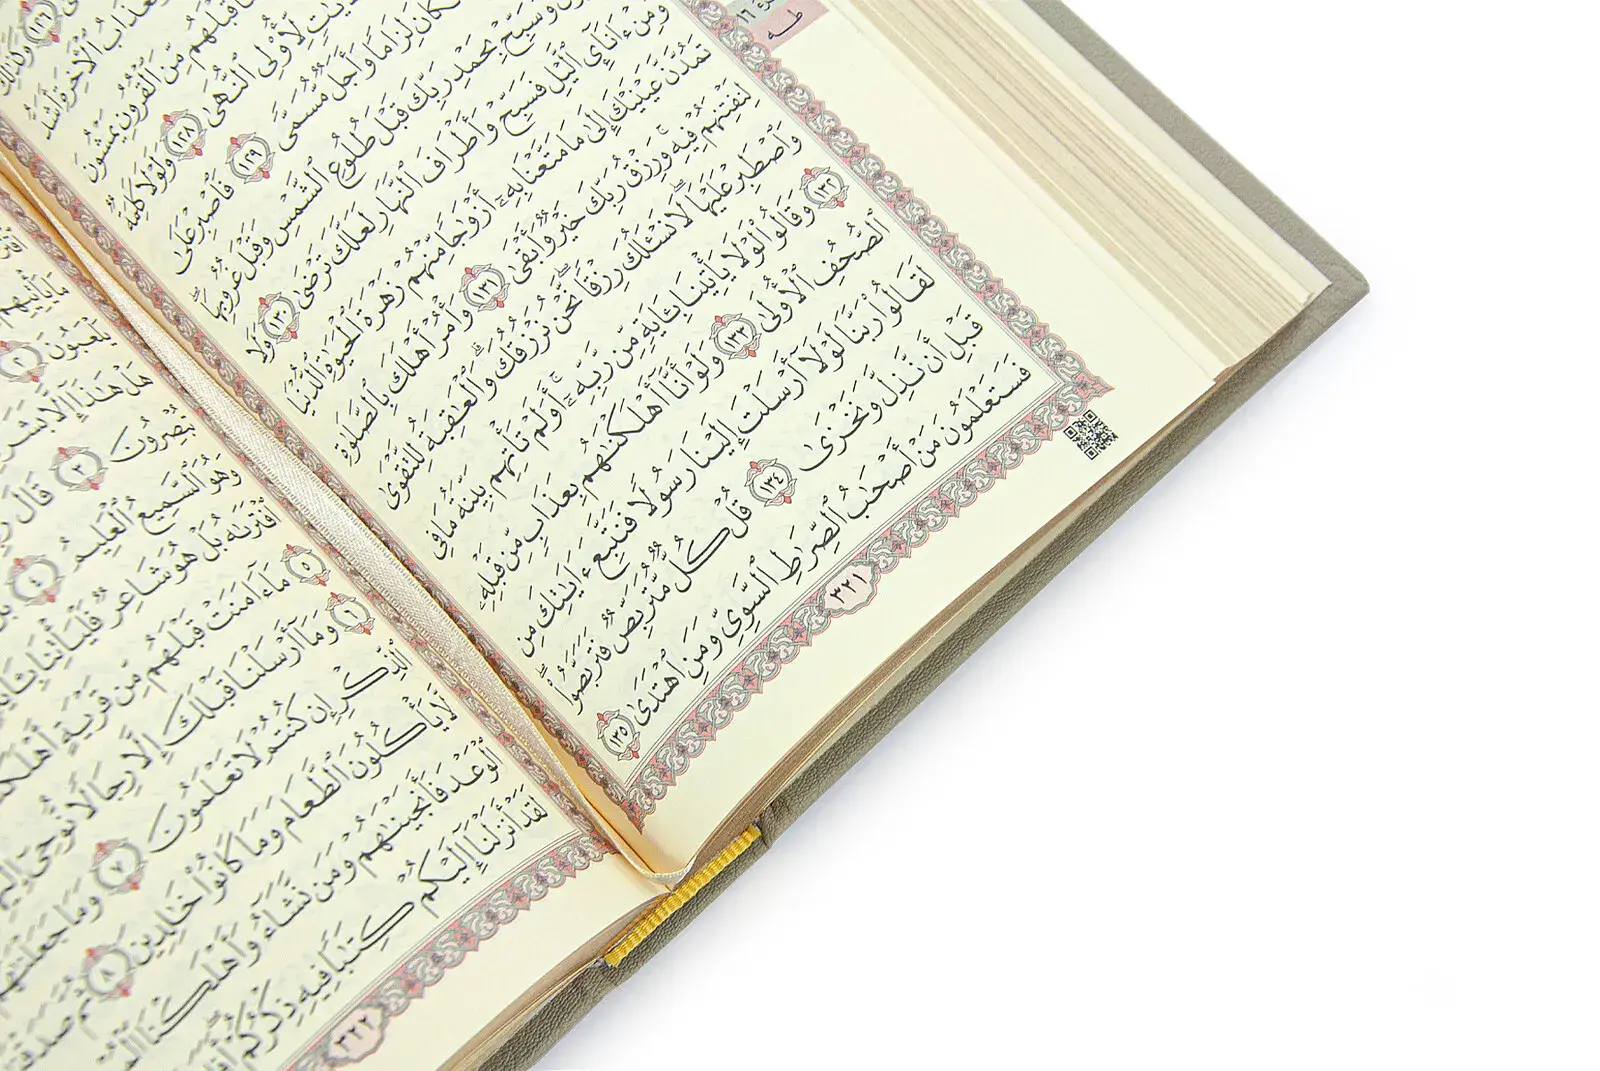 وَكَذَٰلِكَ ١٢٦
وَلَعَذَابُ ٱلْأَخِرَةِ أَشَدُّ
قَبْلَهُم مِّنَ ٱلْقُرُونِ يَمْشُونَ
لِّأُو۟لِى ٱلنُّهَىٰ ١٢٨ وَلَوْلَا كَلِمَةٌ
لَكَانَ لِزَامًا وَأَجَلٌ مُّسَمًّى ١٢٩ فَٱصْبِرْ عَلَىٰ
وَسَبِّحْ بِحَمْدِ رَبِّكَ قَبْلَ طُلُوعِ ٱلشَّمْسِ وَقَبْلَ غُرُوبِهَا ۖ
وَمِنْ ءَانَآئِ ٱلَّيْلِ فَسَبِّحْ وَأَطْرَافَ ٱلنَّهَارِ لَعَلَّكَ تَرْضَىٰ ١٣٠ وَلَا
تَمُدَّنَّ عَيْنَيْكَ إِلَىٰ مَا مَتَّعْنَا بِهِۦٓ أَزْوَٰجًا مِّنْهُمْ زَهْرَةَ ٱلْحَيَوٰةِ ٱلدُّنْيَا
لِنَفْتِنَهُمْ فِيهِ ۚ وَرِزْقُ رَبِّكَ خَيْرٌ وَأَبْقَىٰ ١٣١ وَأْمُرْ أَهْلَكَ بِٱلصَّلَوٰةِ
وَٱصْطَبِرْ عَلَيْهَا ۖ لَا نَسْـَٔلُكَ رِزْقًا ۖ نَّحْنُ نَرْزُقُكَ ۗ وَٱلْعَٰقِبَةُ لِلتَّقْوَىٰ
١٣٢ وَقَالُوا۟ لَوْلَا يَأْتِينَا بِـَٔايَةٍ مِّن رَّبِّهِۦٓ ۚ أَوَلَمْ تَأْتِهِم بَيِّنَةُ مَا فِى
ٱلصُّحُفِ ٱلْأُولَىٰ ١٣٣ وَلَوْ أَنَّآ أَهْلَكْنَٰهُم بِعَذَابٍ مِّن قَبْلِهِۦ
لَقَالُوا۟ رَبَّنَا لَوْلَآ أَرْسَلْتَ إِلَيْنَا رَسُولًا فَنَتَّبِعَ ءَايَٰتِكَ مِن
قَبْلِ أَن نَّذِلَّ وَنَخْزَىٰ ١٣٤ قُلْ كُلٌّ مُّتَرَبِّصٌ فَتَرَبَّصُوا۟ ۖ
فَسَتَعْلَمُونَ مَنْ أَصْحَٰبُ ٱلصِّرَٰطِ ٱلسَّوِىِّ وَمَنِ ٱهْتَدَىٰ ١٣٥
طه
١٦
٣٢١
مَا يَأْتِيهِم
يَلْعَبُونَ ٢
هَلْ هَٰذَآ إِلَّا بَشَرٌ
تُبْصِرُونَ ٣ قَالَ
وَهُوَ ٱلسَّمِيعُ ٱلْعَلِيمُ ٤
ٱفْتَرَىٰهُ بَلْ هُوَ شَاعِرٌ فَلْيَأْتِنَا
٥ مَآ ءَامَنَتْ قَبْلَهُم مِّن قَرْيَةٍ
٦ وَمَآ أَرْسَلْنَا قَبْلَكَ إِلَّا رِجَالًا نُّوحِىٓ
ٱلذِّكْرِ إِن كُنتُمْ لَا تَعْلَمُونَ ٧ وَمَا جَعَلْنَٰهُمْ
لَّا يَأْكُلُونَ ٱلطَّعَامَ وَمَا كَانُوا۟ خَٰلِدِينَ ٨ ثُمَّ
ٱلْوَعْدَ فَأَنجَيْنَٰهُمْ وَمَن نَّشَآءُ وَأَهْلَكْنَا
لَقَدْ أَنزَلْنَآ إِلَيْكُمْ كِتَٰبًا فِيهِ ذِكْرُكُمْ
٣٢٢